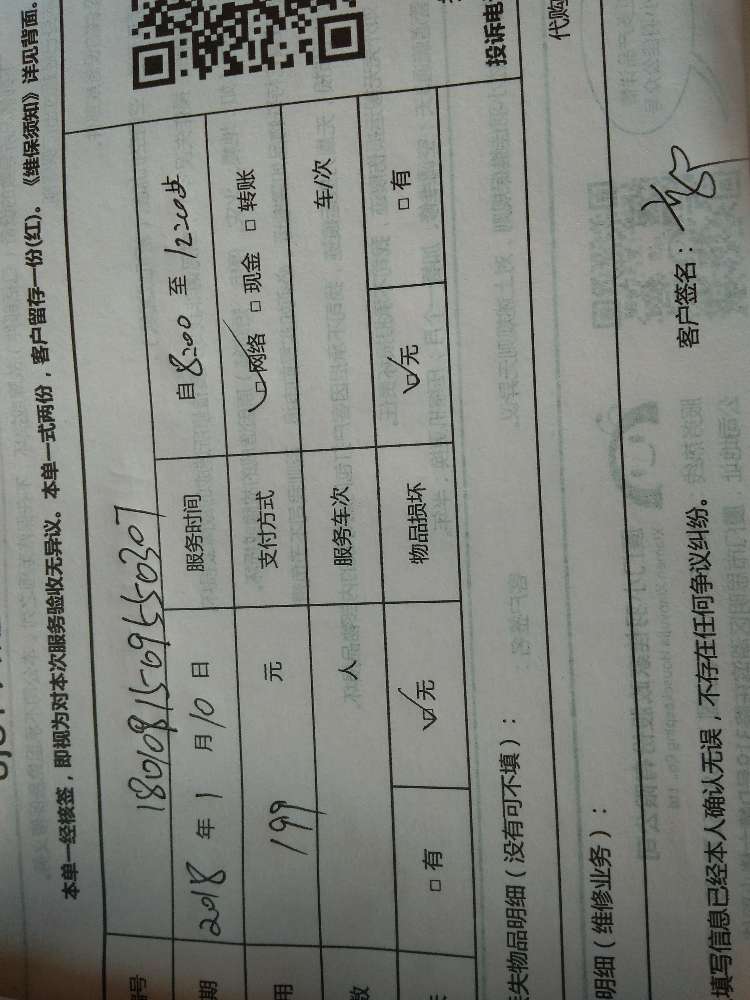 本单一经核签，即视为对本次服务验收无异议。本单一式两份，客户留存一份(红)。《维保须知》详见背面。
号 1801081509550307
期 2018 年 1 月 10 日 服务时间 自 8:00 至 12:00
用 199 元 支付方式 ☑网络 □现金 □转账
数 人 服务车次 车/次
□有 ☑无 物品损坏 ☑无 □有
失物品明细（没有可不填）：
投诉电
明细（维修业务）：
代购
填写信息已经本人确认无误，不存在任何争议纠纷。
客户签名：